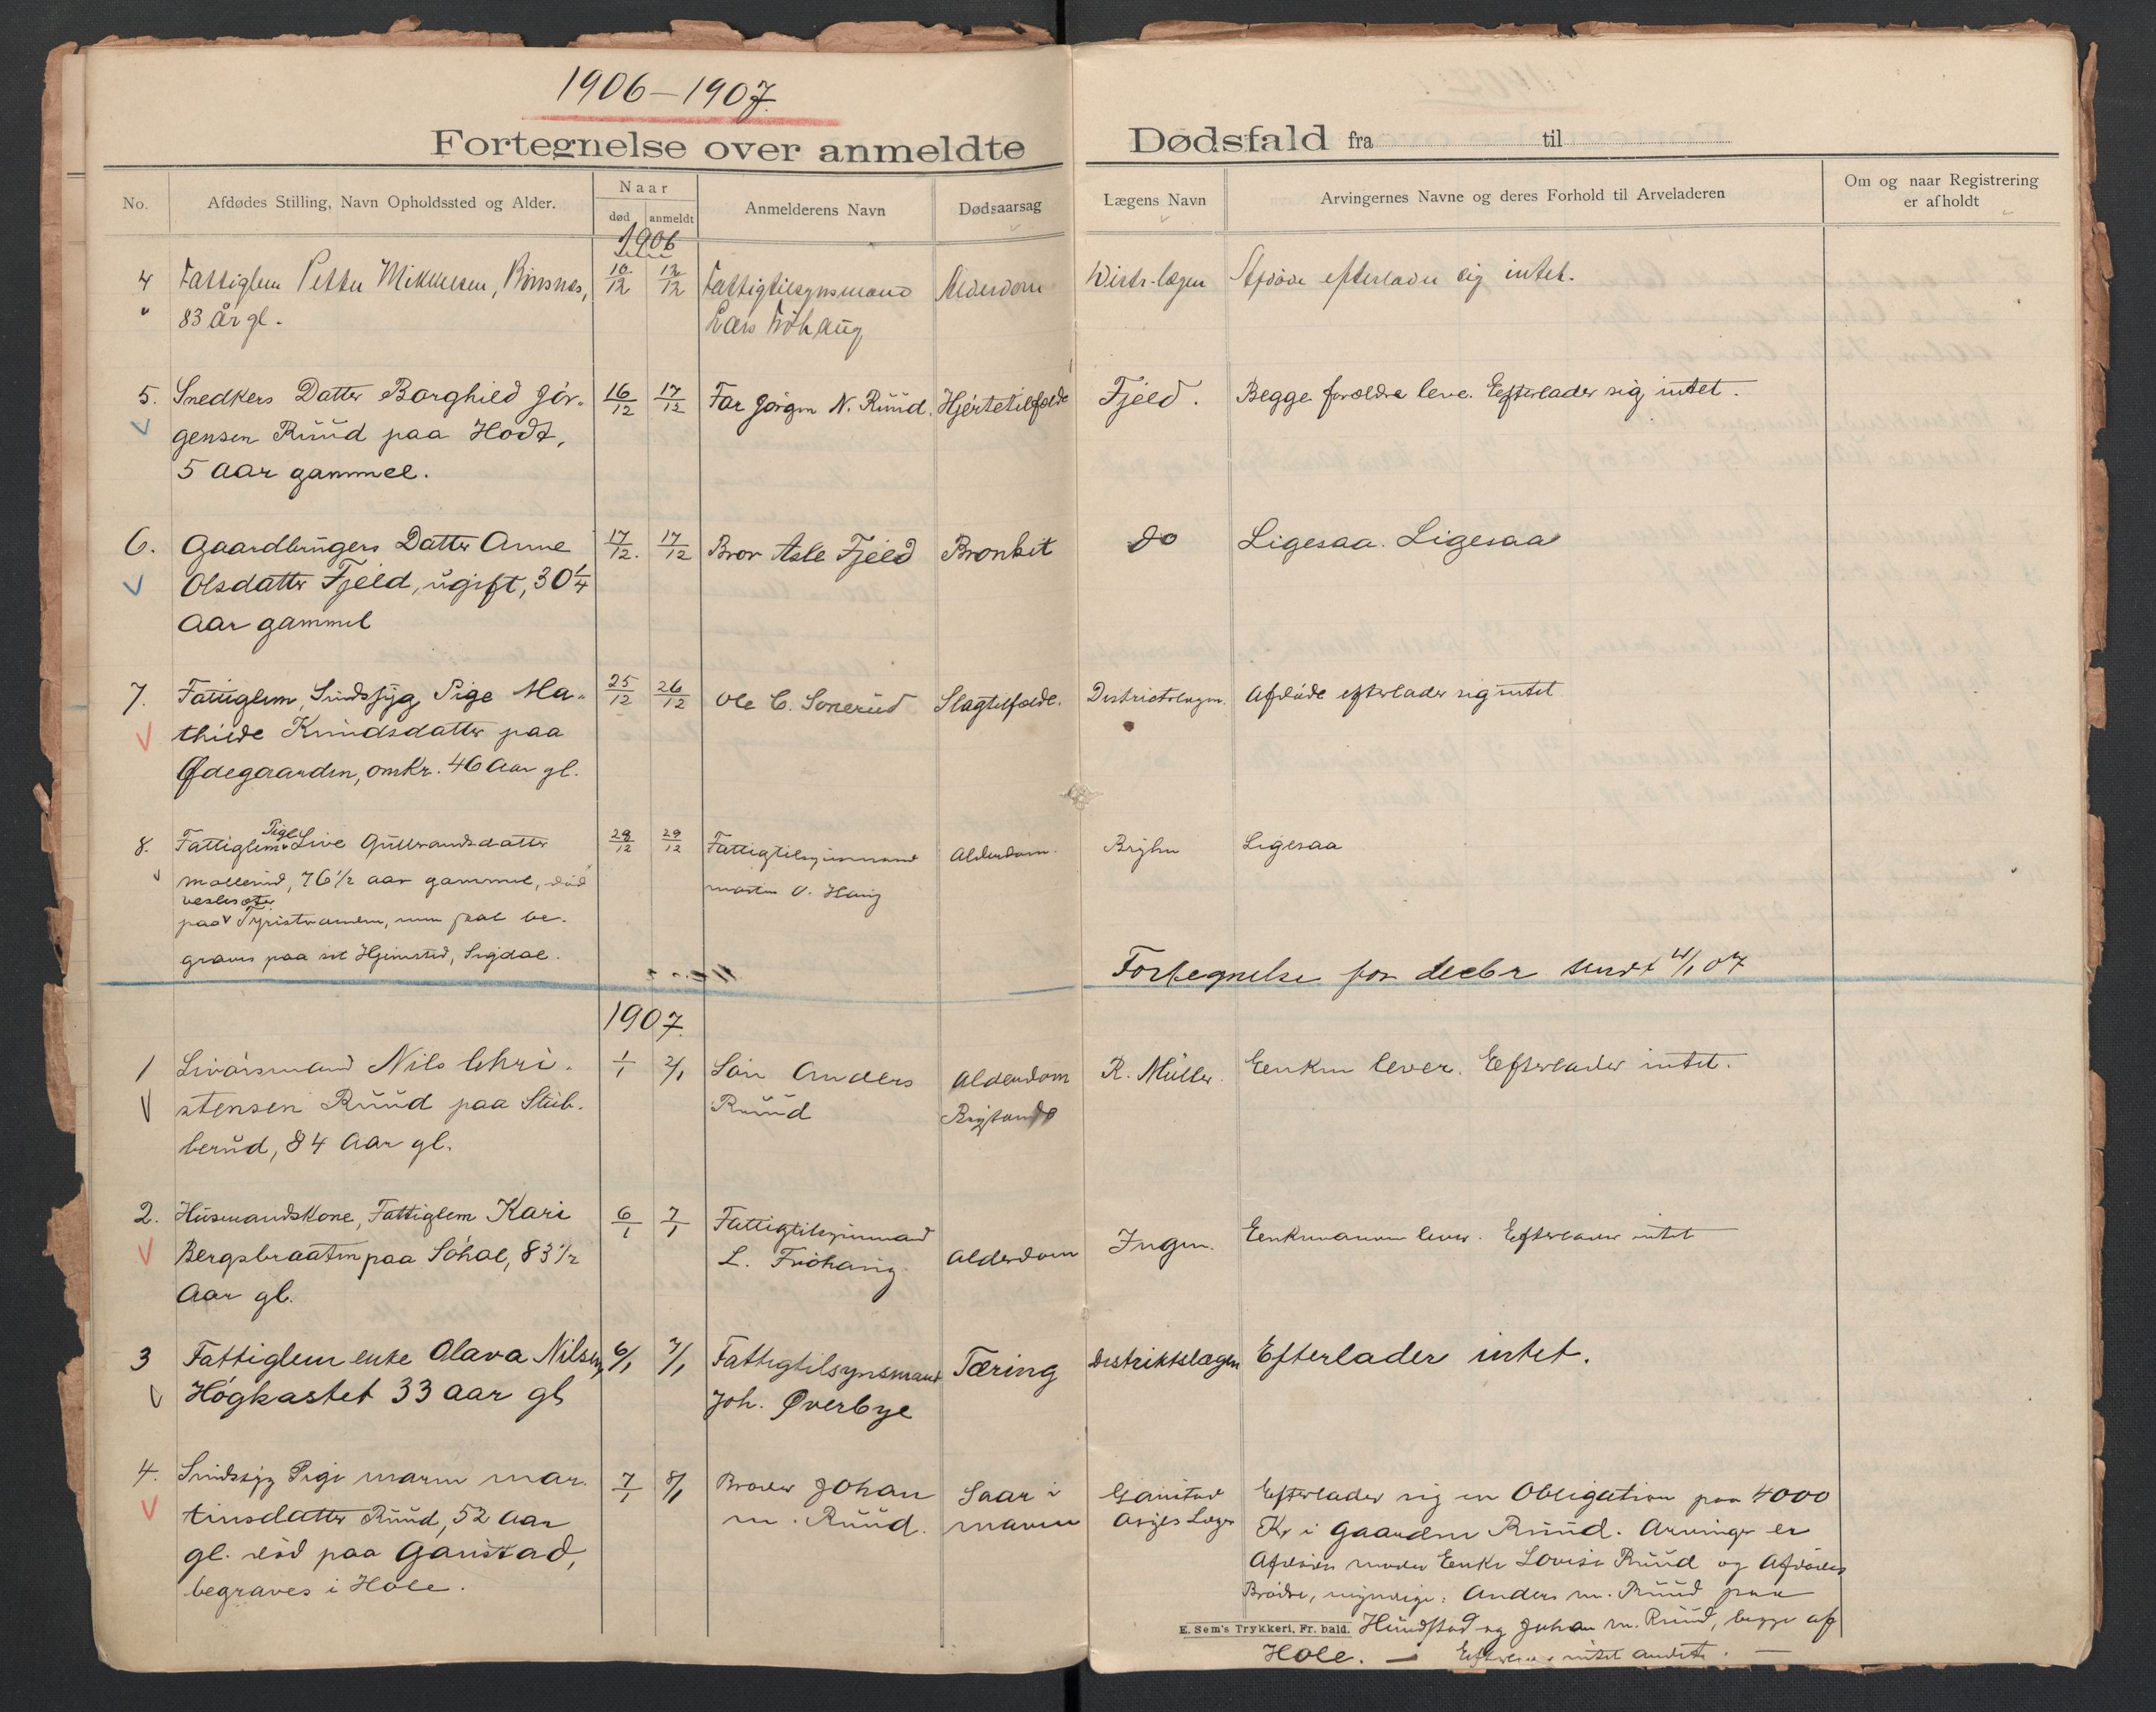 1906-1907.
Fortegnelse over anmeldte Dødsfald fra til
No.
Afdødes Stilling, Navn Opholdssted og Alder.
Naar
død anmeldt
Anmelderens Navn
Dødsaarsag
Lægens Navn
Arvingernes Navne og deres Forhold til Arveladeren
Om og naar Registrering
er afholdt
1906
4 Fattiglem Petter Mikkelsen, Bönsnes, 10/12 12/12 Fattigtilsynsmand Alderdom Distr.lægen Afdöde efterlader sig intet.
" 83 år gl. Lars Fröhaug
5. Snedkers Datter Borghild Jör- 16/12 17/12 Far Jörgen N. Ruud. Hjertetilfælde Fjeld. Begge forældre leve. Efterlader sig intet.
gensen Ruud paa Hodt,
5 Aar gammel.
6. Gaardbrugers Datter Anne 17/12. 17/12 Bror Asle Fjeld Bronkit do Ligesaa. Ligesaa
Olsdatter Fjeld, ugift, 30 1/4
Aar gammel
7. Fattiglem, Sindssyg Pige Ma- 25/12 26/12 Ole C. Sonerud Slagtilfælde. Districtslægen. Afdöde efterlader sig intet
thilde Knudsdatter paa
Ødegaarden, omkr. 46 Aar gl.
8. Fattiglem Pige Live Gulbrandsdatter 29/12 29/12 Fattigtilsynsmand Alderdom. Bryhn Ligesaa
Mollerud, 76 1/2 aar gammel, död Martin O. Haug
paa Tyristranden, men skal be-
graves paa sit Hjemsted, Sigdal.
Fortegnelse for decbr sendt 4/1 07
1907.
1 Livörsmand Nils Chri- 1/1 2/1 Sön Anders Alderdom R. Müller. Eenken lever. Efterlader intet.
stensen Ruud paa Stub- Ruud
berud, 84 Aar gl.
2. Husmandskone, Fattiglem Kari 6/1 7/1 Fattigtilsynsmand Alderdom Ingen. Eenkemanden lever. Efterlader intet
Bergsbraaten paa Söhol, 83 1/2 L. Fröhaug
Aar gl.
3 Fattiglem enke Olava Nilsen, 6/1 7/1 Fattigtilsynsmand Tæring Distriktslægen Efterlader intet.
Högkastet 33 aar gl Joh. Øverbye
4. Sindssyg Pige Maren Mar- 7/1 8/1 Broder Johan Saar i Gaustad Efterlader sig en Obligation paa 4000
tinsdatter Ruud, 52 Aar M. Ruud. maven Asyls Læge Kr i Gaarden Ruud. Arvinger er
gl. död paa Gaustad, Afdödes moder Eenke Lovise Ruud og Afdödes
begraves i Hole. Brödre, myndige: Anders M. Ruud paa
E. Sem's Trykkeri, Fr. hald. Hundstad og Johan M. Ruud, begge af
Hole. — Efterlader intet andet. —